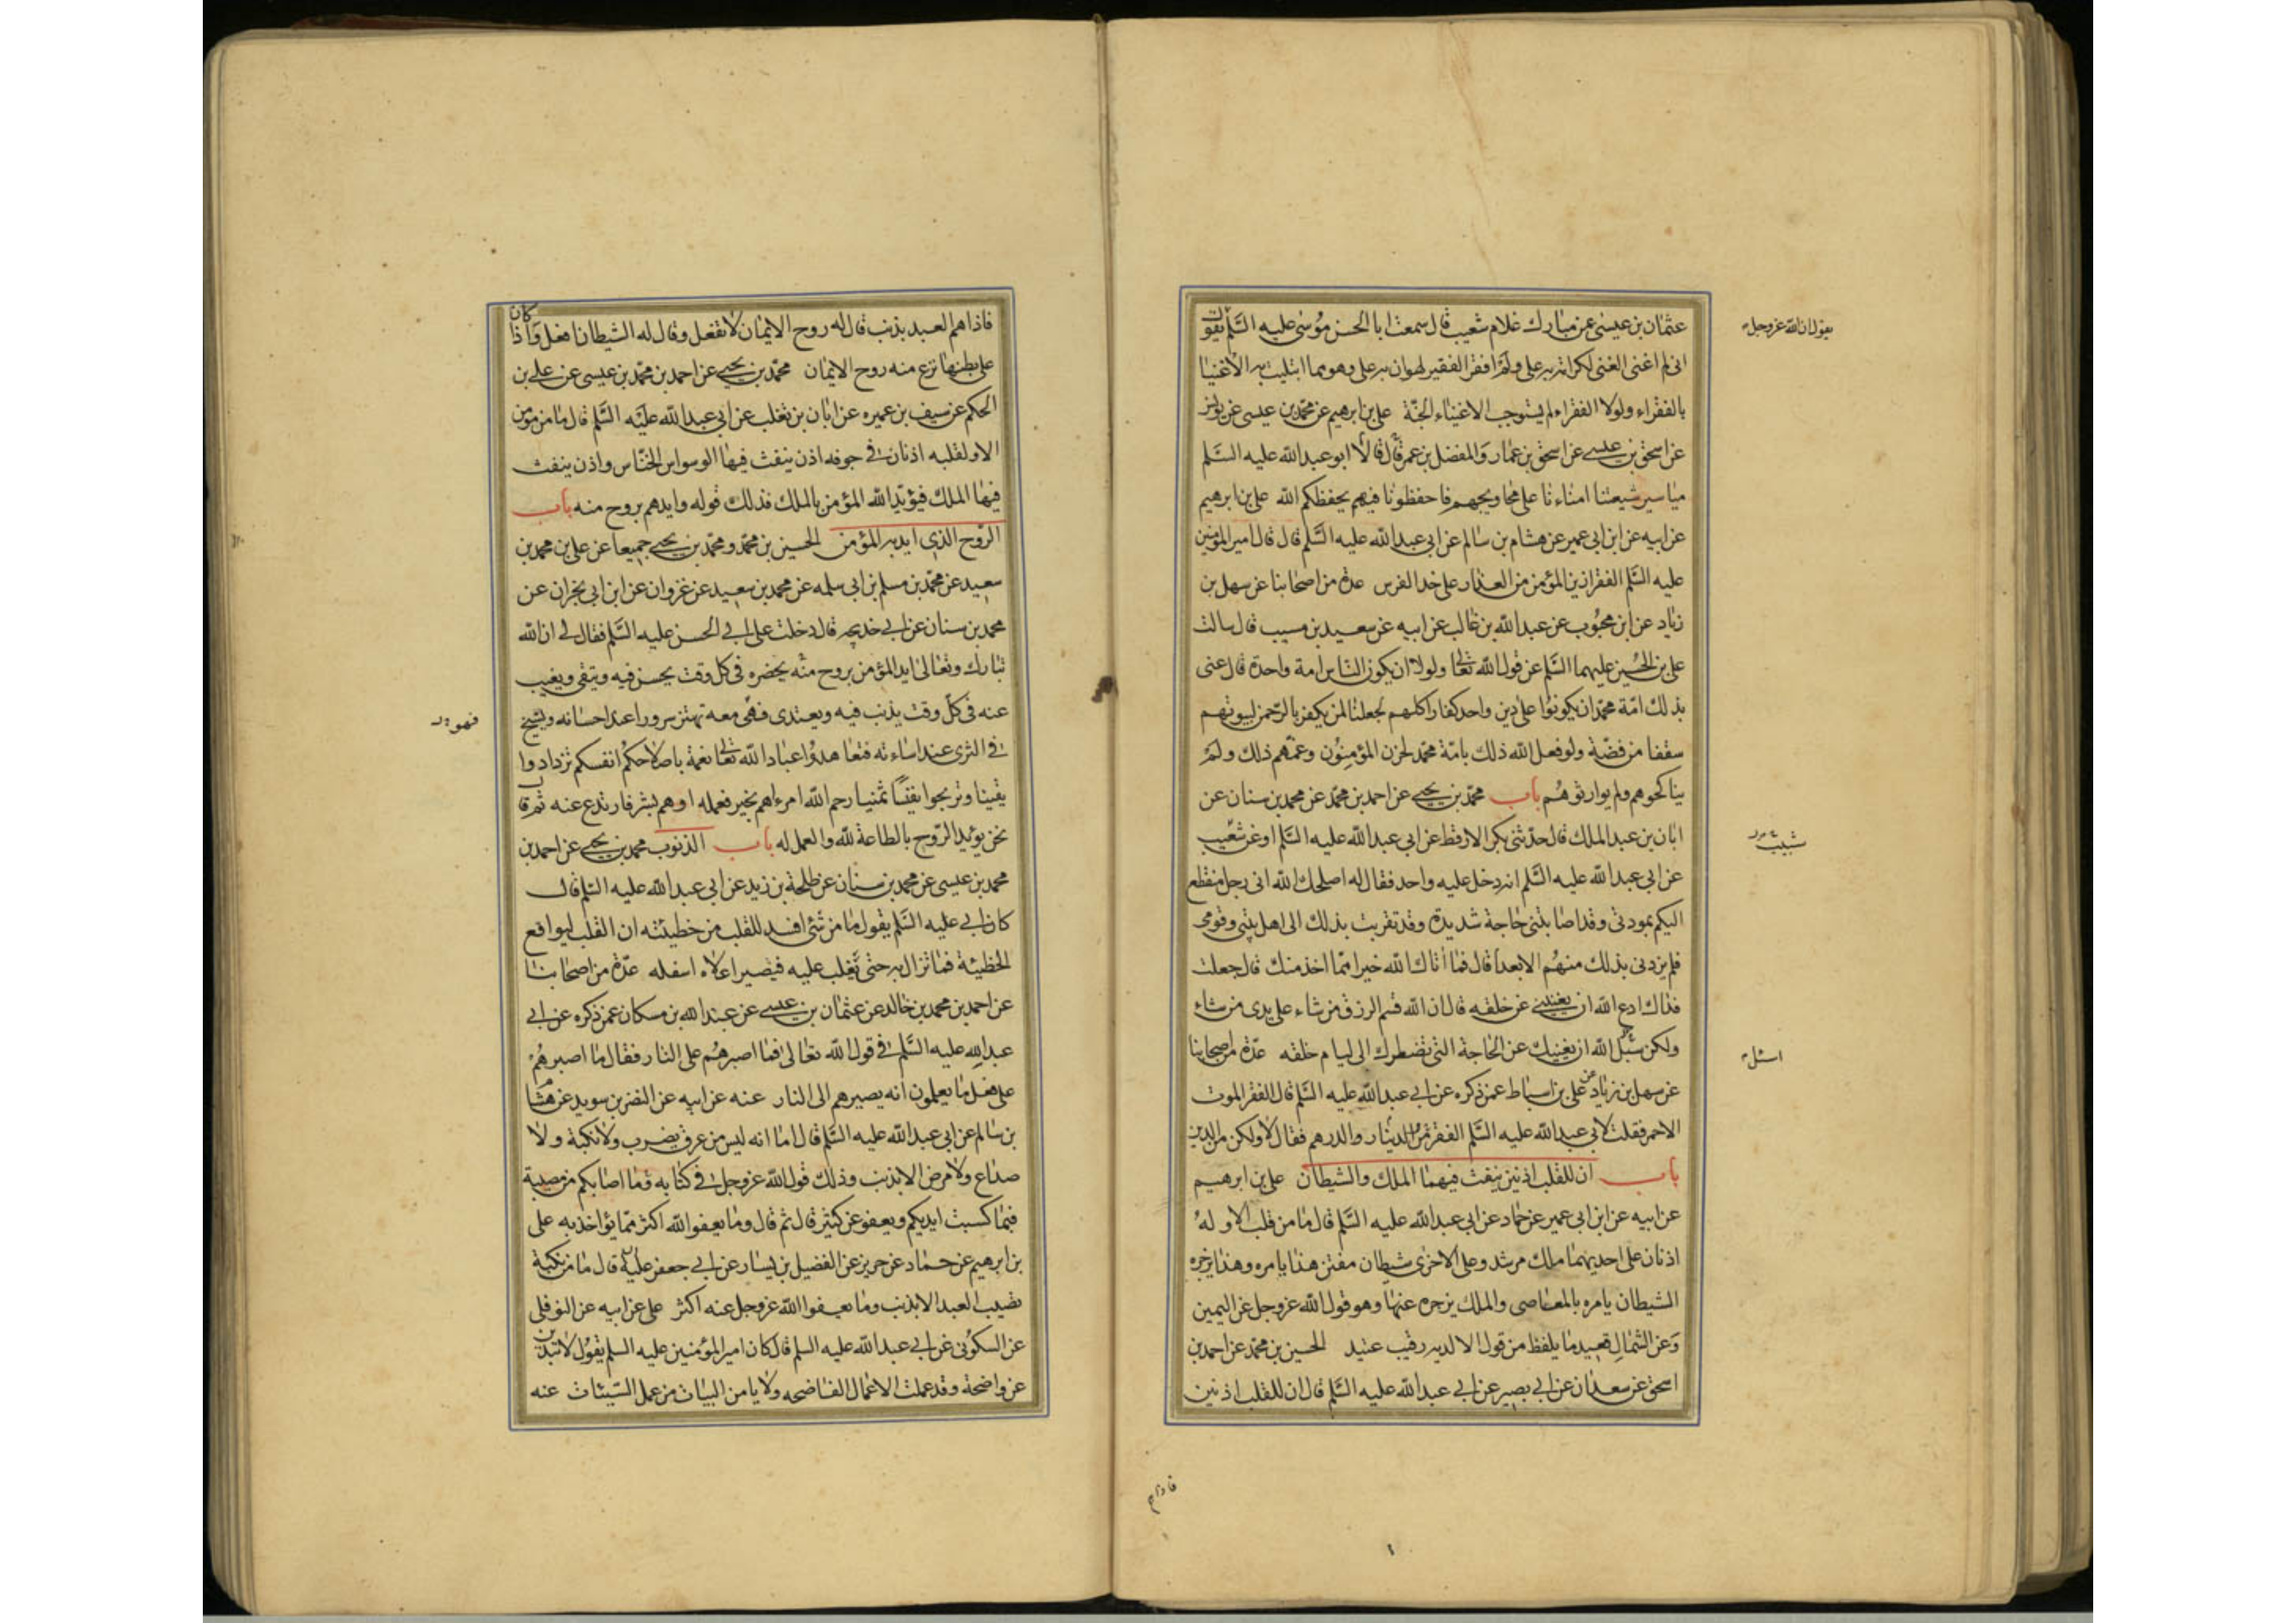 عثمان بن عيسى عمن مبارك غلام شعيب قال سمعت ابا الحسن موسى عليه السلم يقول
يقول ان الله عز وجل
انى لم اغنى الغنى لكرامة به على ولم افقر الفقير لهوان به على وهو مما ابتليت به الاغنيا
بالفقراء ولولا الفقراء لم يستوجب الاغنياء الجنة على بن ابرهيم عن محمد بن عيسى عن يونس
عن اسحق بن عيسى عن اسحق بن عمار والمفضل بن عمر قال قالا ابو عبد الله عليه السلم
مياسير شيعتنا امناءنا على محاويجهم فاحفظونا فيهم يحفظكم الله على بن ابرهيم
عن ابيه عن ابن ابى عمير عن هشام بن سالم عن ابى عبد الله عليه السلم قال قال امير المؤمنين
عليه السلم الفقر ازين المؤمن من العذار على خد الفرس عدة من اصحابنا عن سهل بن
زياد عن ابن محبوب عن عبد الله بن غالب عن ابيه عن سعيد بن مسيب قال سالت
على بن الحسين عليهما السلم عن قول الله تعالى ولولا ان يكون الناس امة واحدة قال عنى
بذلك امة محمد ان يكونوا على دين واحد كفارا كلهم لجعلنا لمن يكفر بالرحمن لبيوتهم
سقفا من فضة ولو فعل الله ذلك بامة محمد لحزن المؤمنون وغمهم ذلك ولم
يناكحوهم ولم يوارثوهم باب محمد بن يحيى عن احمد بن محمد عن محمد بن سنان عن
ابان بن عبد الملك قال حدثنى بكر الارقط عن ابى عبد الله عليه السلم او عن شعيب
شبيب
عن ابى عبد الله عليه السلم انه دخل عليه واحد فقال له اصلحك الله انى رجل منقطع
اليكم بمودتى وقد اصابتنى حاجة شديدة وقد تقربت بذلك الى اهل بيتى وقومى
فلم يزدنى بذلك منهم الا بعدا قال فما اتاك الله خيرا مما اخذ منك قال جعلت
فداك ادع الله ان يغنينى عن خلقه قال ان الله قسم الرزق من شاء على يدى من شاء
ولكن سئل الله ان يغنيك عن الحاجة التى تضطرك الى ليام خلقه عدة من اصحابنا
اسئل
عن سهل بن زياد عن على بن اسباط عمن ذكره عن ابى عبد الله عليه السلم قال الفقر الموت
الاحمر فقلت لابى عبد الله عليه السلم الفقر من الدينار والدرهم فقال لا ولكن من الدين
باب ان للقلب اذنين ينفث فيهما الملك والشيطان على بن ابرهيم
عن ابيه عن ابن ابى عمير عن حماد عن ابى عبد الله عليه السلم قال ما من قلب الا وله
اذنان على احديهما ملك مرشد وعلى الاخرى شيطان مفتن هذا يامره وهذا يزجره
الشيطان يامره بالمعاصى والملك يزجره عنها وهو قول الله عز وجل عن اليمين
وعن الشمال قعيد ما يلفظ من قول الا لديه رقيب عتيد الحسين بن محمد عن احمد بن
اسحق عن سعدان عن ابى بصير عن ابى عبد الله عليه السلم قال ان للقلب اذنين
فاذا هم
فاذا هم العبد بذنب قال له روح الايمان لا تفعل وقال له الشيطان افعل واذا كان
على بطنها نزع منه روح الايمان محمد بن يحيى عن احمد بن محمد بن عيسى عن على بن
الحكم عن سيف بن عميره عن ابان بن تغلب عن ابى عبد الله عليه السلم قال ما من مؤمن
الا ولقلبه اذنان فى جوفه اذن ينفث فيها الوسواس الخناس واذن ينفث
فيها الملك فيؤيد الله المؤمن بالملك فذلك قوله وايدهم بروح منه باب
الروح الذى ايد به المؤمن الحسين بن محمد ومحمد بن يحيى جميعا عن على بن محمد بن
سعيد عن محمد بن مسلم بن ابى سلمه عن محمد بن سعيد عن غزوان عن ابن ابى نجران عن
محمد بن سنان عن ابى خديجه قال دخلت على ابى الحسن عليه السلم فقال لى ان الله
تبارك وتعالى ايد المؤمن بروح منه يحضره فى كل وقت يحسن فيه ويتقى ويغيب
عنه فى كل وقت يذنب فيه ويعتدى فهى معه تهتز سرورا عند احسانه وتسيخ
فى الثرى عند اساءته فتعاهدوا عباد الله تعالى نعمة باصلاحكم انفسكم تزدادوا
يقينا وتربحوا نفيسا ثمنيا رحم الله امرءا هم بخير فعمله او هم بشر فارتدع عنه ثم قال
نحن يؤيد الروح بالطاعة لله والعمل له باب الذنوب محمد بن يحيى عن احمد بن
محمد بن عيسى عن محمد بن سنان عن طلحة بن زيد عن ابى عبد الله عليه السلم قال
كان ابى عليه السلم يقول ما من شئ افسد للقلب من خطيئته ان القلب ليواقع
الخطيئة فما تزال به حتى تغلب عليه فيصير اعلاه اسفله عدة من اصحابنا
عن احمد بن محمد بن خالد عن عثمان بن عيسى عن عبد الله بن مسكان عمن ذكره عن ابى
عبد الله عليه السلم فى قول الله تعالى فما اصبرهم على النار فقال ما اصبرهم
على فعل ما يعلمون انه يصيرهم الى النار عنه عن ابيه عن النضر بن سويد عن هشام
بن سالم عن ابى عبد الله عليه السلم قال اما انه ليس من عرق يضرب ولا نكبة ولا
صداع ولا مرض الا بذنب وذلك قول الله عز وجل فى كتابه وما اصابكم من مصيبة
فبما كسبت ايديكم ويعفو عن كثير قال ثم قال وما يعفو الله اكثر مما يؤاخذ به على
بن ابرهيم عن حماد عن حريز عن الفضيل بن يسار عن ابى جعفر عليه قال ما من نكبة
تصيب العبد الا بذنب وما يعفوا الله عز وجل عنه اكثر على عن ابيه عن النوفلى
عن السكونى عن ابى عبد الله عليه السلم قال كان امير المؤمنين عليه السلم يقول لا تبدين
عن واضحة وقد عملت الاعمال الفاضحه ولا يامن البيات من عمل السيئات عنه